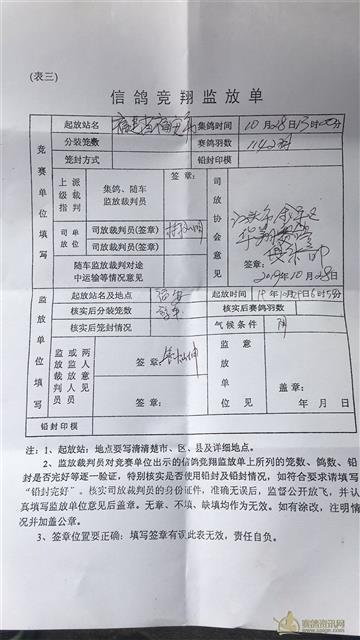 (表三)
信鸽竞翔监放单
起放站名 福建省福安市 集鸽时间 10月28日13时00分
分装笼数 赛鸽羽数 1142羽
笼封方式 铅封印模
竞赛单位填写
上级指派裁判
集鸽、随车
监放裁判员
签章:
司放单位
司放裁判员(签章)
司放裁判员(签章)
随车监放裁判对途
中运输等情况意见
司放协会意见
签章:
2019年10月28日
监放单位填写
起放站名及地点 福安 起放时间 19年10月29日6时55分
核实后分装笼数 核实后赛鸽羽数
核实后笼封情况 气候条件 阴
监放裁判员
或两人放飞人员意见
签章:
签章:
监放单位意见
盖章:
年 月 日
铅封印模
注:1、起放站:地点要写清清楚市、区、县及详细地点。
2、监放裁判员对竞赛单位出示的信鸽竞翔监放单上所列的笼数、鸽数、铅
封是否完好等逐一验证,特别核实是否使用铅封及铅封情况,如符合要求请填写
“铅封完好”。核实司放裁判员的身份证件,准确无误后,监督公开放飞,并认
真填写监放单位意见后盖章。无章、不填、缺填均作为无效。如有涂改,注明情
况并加盖公章。
3、签章位置要正确;填写签章有误此表无效,责任自负。
赛鸽资讯网